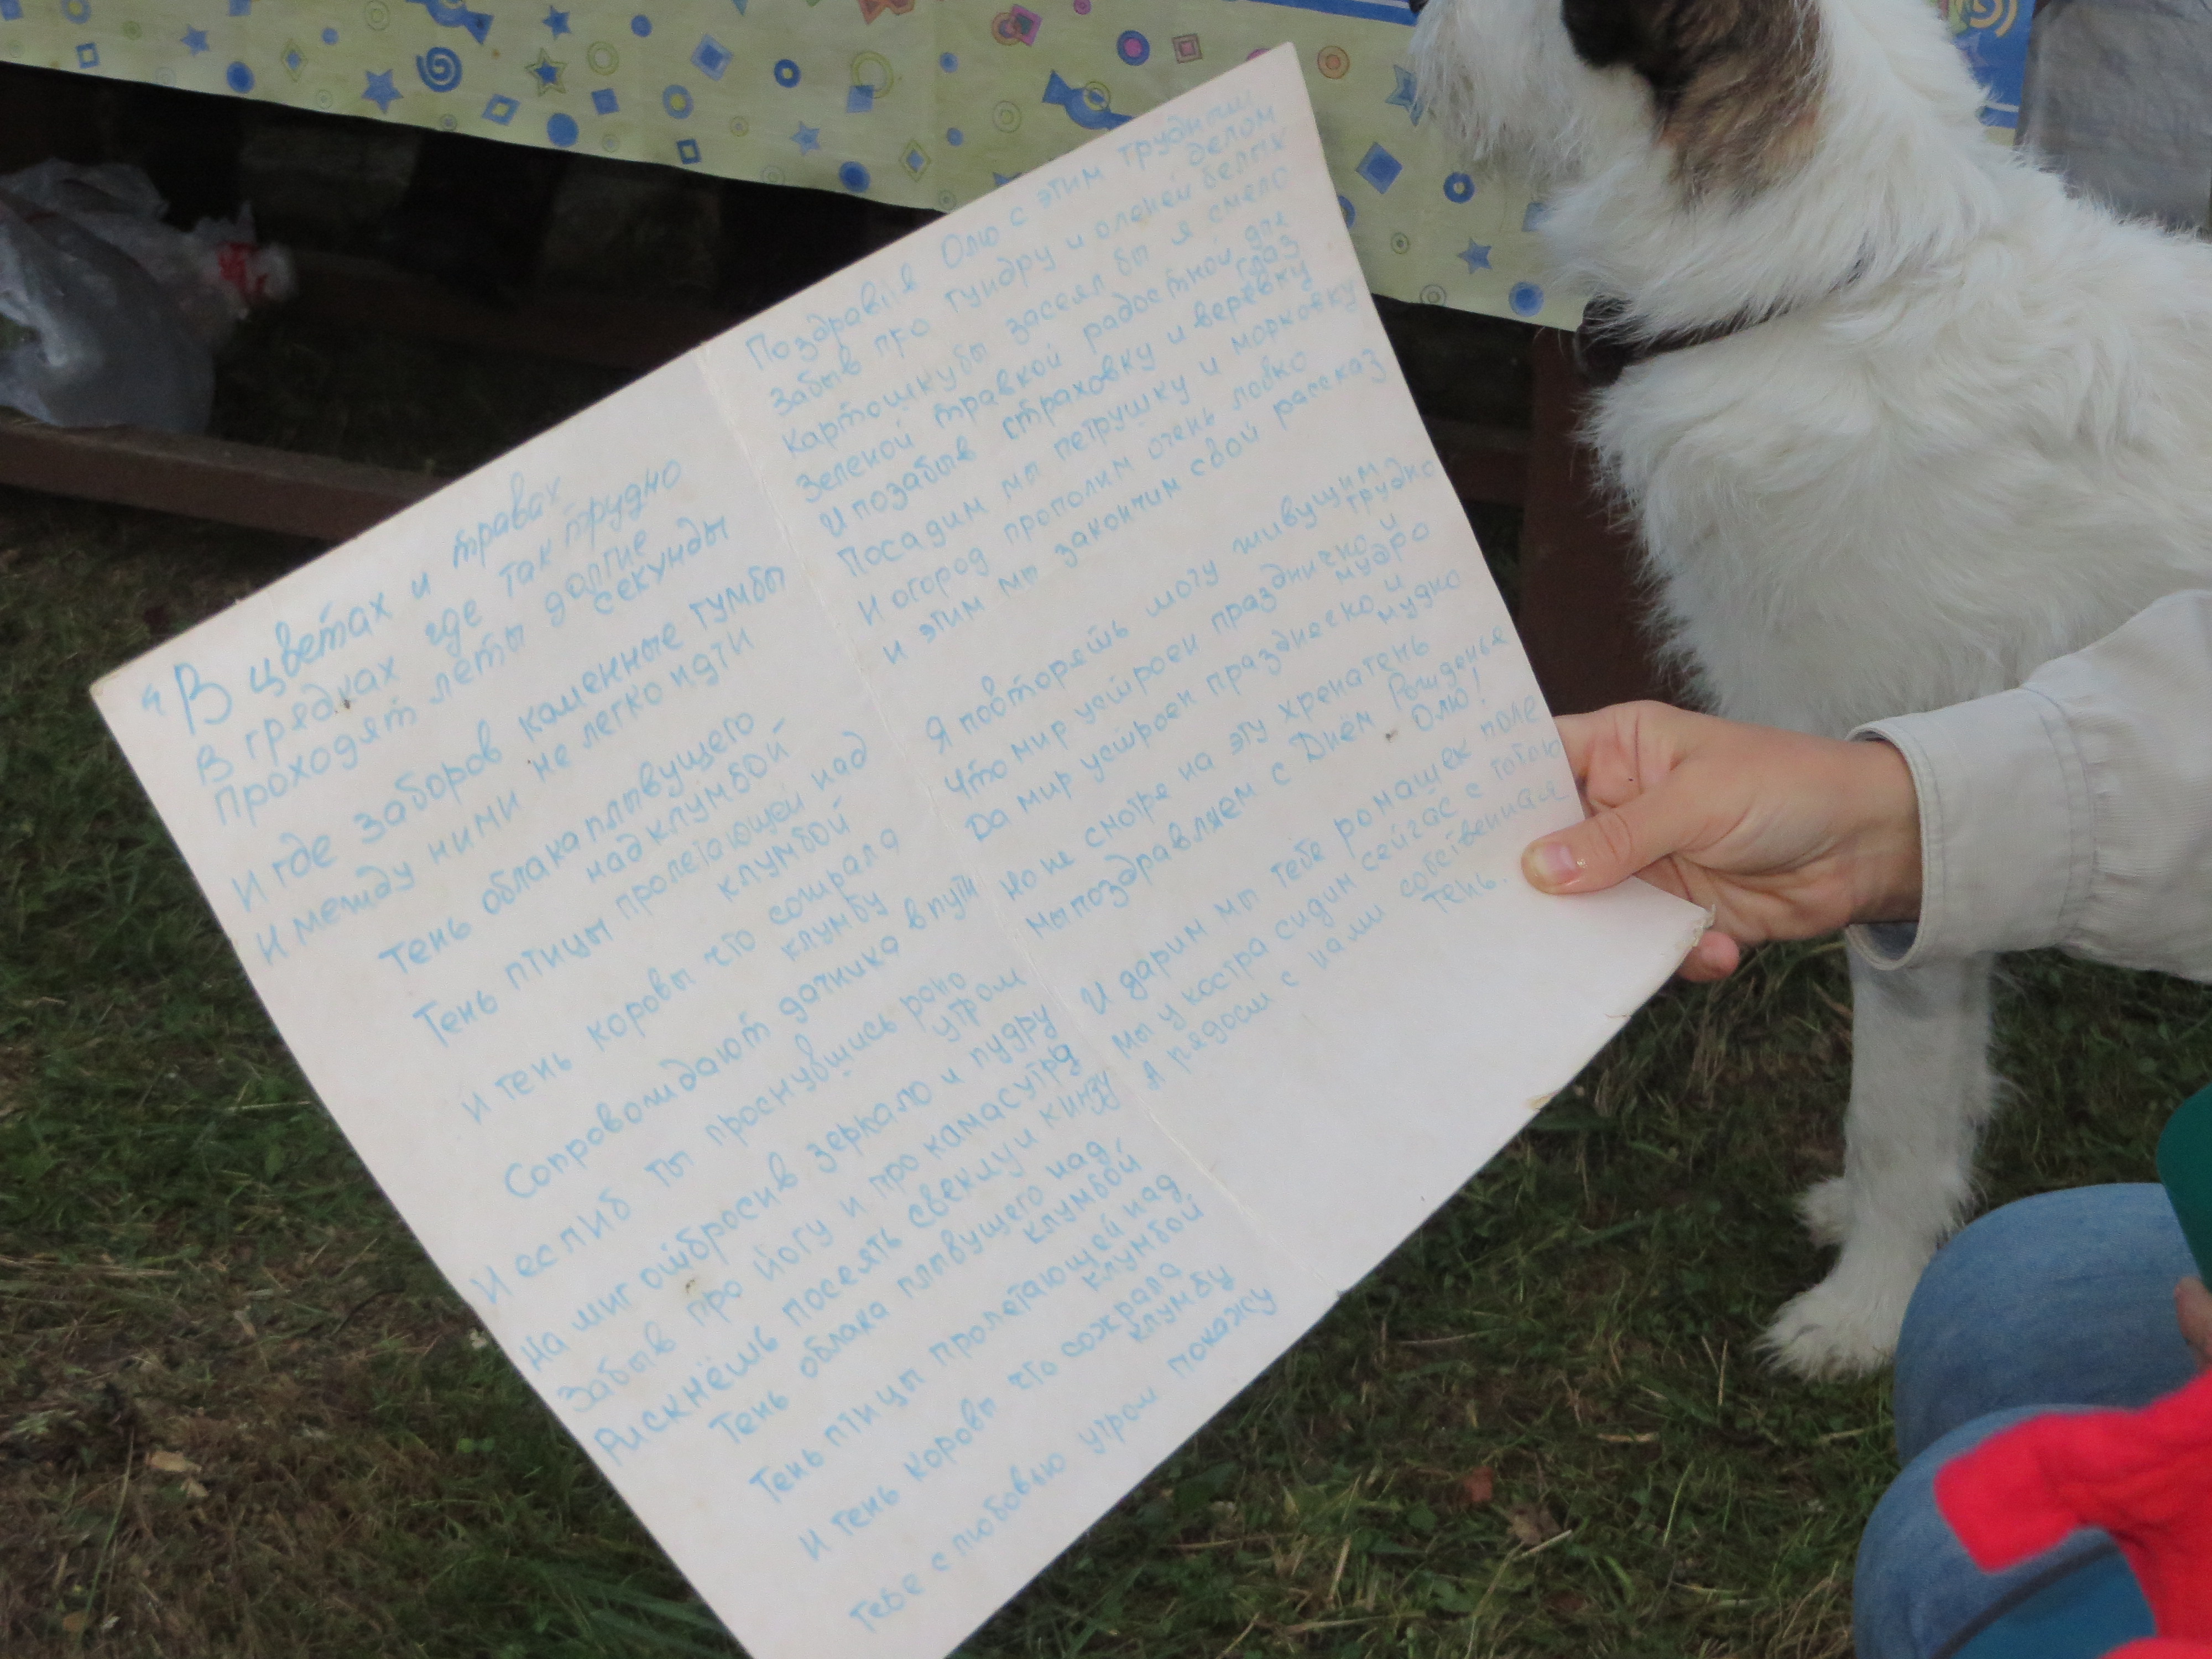 "В цветах и травах
В грядках где так трудно
Проходят леты долгие
секунды
И где заборов каменные тумбы
И между ними не легко идти
Тень облака плывущего
над клумбой
Тень птицы пролетающей над
клумбой
И тень коровы что сожрала
клумбу
Сопровождают дачника в пути
И еслиб ты проснувшись рано
утром
На миг отбросив зеркало и пудру
Забыв про йогу и про камасутру
Рискнёшь посеять свеклу и кинзу
Тень облака плывущего над
клумбой
Тень птицы пролетающей над
клумбой
И тень коровы что сожрала
клумбу
Тебе с любовью утром покажу
Поздравив Олю с этим трудным
делом
Забыв про тундру и оленей белых
Картошку бы засеял бы я смело
Зеленой травкой радостной для
глаз
И позабыв страховку и верёвку
Посадим мы петрушку и морковку
И огород прополим очень ловко
И этим мы закончим свой рассказ
Я повторять могу живущим
трудно
Что мир устроен празднично и
мудро
Да мир устроен и
мудно
Но не смотря на эту хренатень
Мы поздравляем с Днём Рожденья
Олю!
И дарим мы тебе ромашек поле
Мы у костра сидим сейчас с тобою
А рядом с нами собственная
тень.